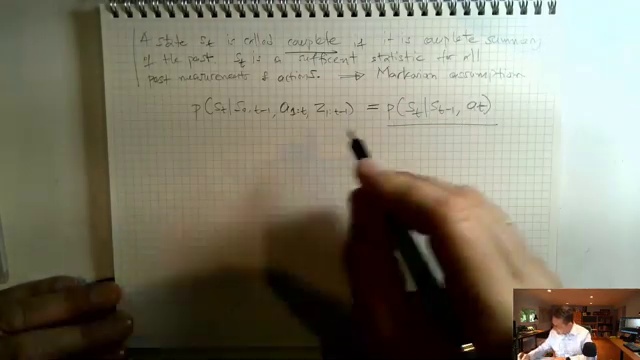 A state st is called complete if it is complete summary
of the past st is a sufficent statistic for all
past measurements & actions. ⟹ Markovian assumption
p(st|s0:t-1, a1:t, z1:t-1) = p(st|st-1, at)